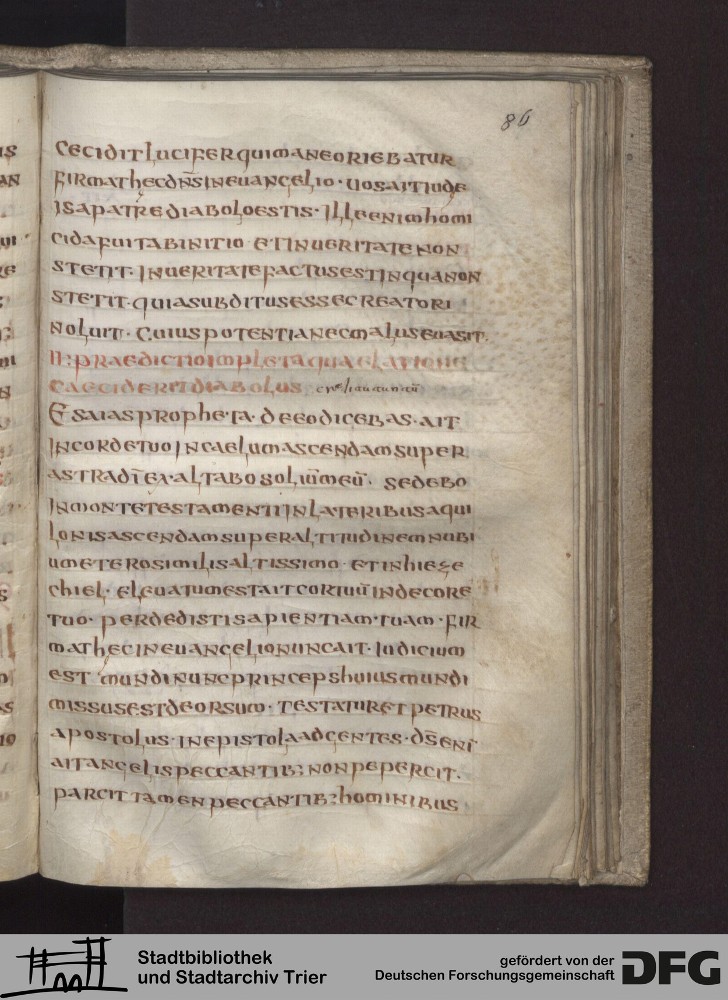 86
CECIDIT LUCIFER QUI MANE ORIEBATUR
FIRMAT HEC DN̄S IN EUANGELIO · UOS AIT IUDE
IS A PATRE DIABOLO ESTIS · ILLE ENIM HOMI
CIDA FUIT AB INITIO · ET IN UERITATE NON
STETIT · IN UERITATE FACTUS EST IN QUA NON
STETIT · QUIA SUBDITUS ESSE CREATORI
NOLUIT · CUIUS POTENTIA NEC MALUS EUASIT ·
II: PRAEDICTIO IMPLETA QUA ELATIONE
CAECIDERIT DIABOLUS
ESAIAS PROPHETA · DE EO DICEBAS · AIT
IN CORDE TUO IN CAELUM ASCENDAM SUPER
ASTRA DĪ EXALTABO SOLIŪ MEŪ · SEDEBO
IN MONTE TESTAMENTI IN LATERIBUS AQUI
LONIS ASCENDAM SUPER ALTITUDINEM NUBI
UM ET ERO SIMILIS ALTISSIMO · ET IN HIEZE
CHIEL · ELEUATUM EST AIT COR TUŪ IN DECORE
TUO · PERDEDISTI SAPIENTIAM · TUAM · FIR
MAT HEC IN EUANGELIO NUNC AIT · IUDICIUM
EST MUNDI NUNC PRINCEPS HUIUS MUNDI
MISSUS EST DEORSUM · TESTATUR ET PETRUS
APOSTOLUS · IN EPISTOLA AD GENTES · DS̄ ENĪ
AIT ANGELIS PECCANTIB; NON PEPERCIT ·
PARCIT TAMEN PECCANTIB; HOMINIBUS
Stadtbibliothek
und Stadtarchiv Trier
gefördert von der
Deutschen Forschungsgemeinschaft
DFG